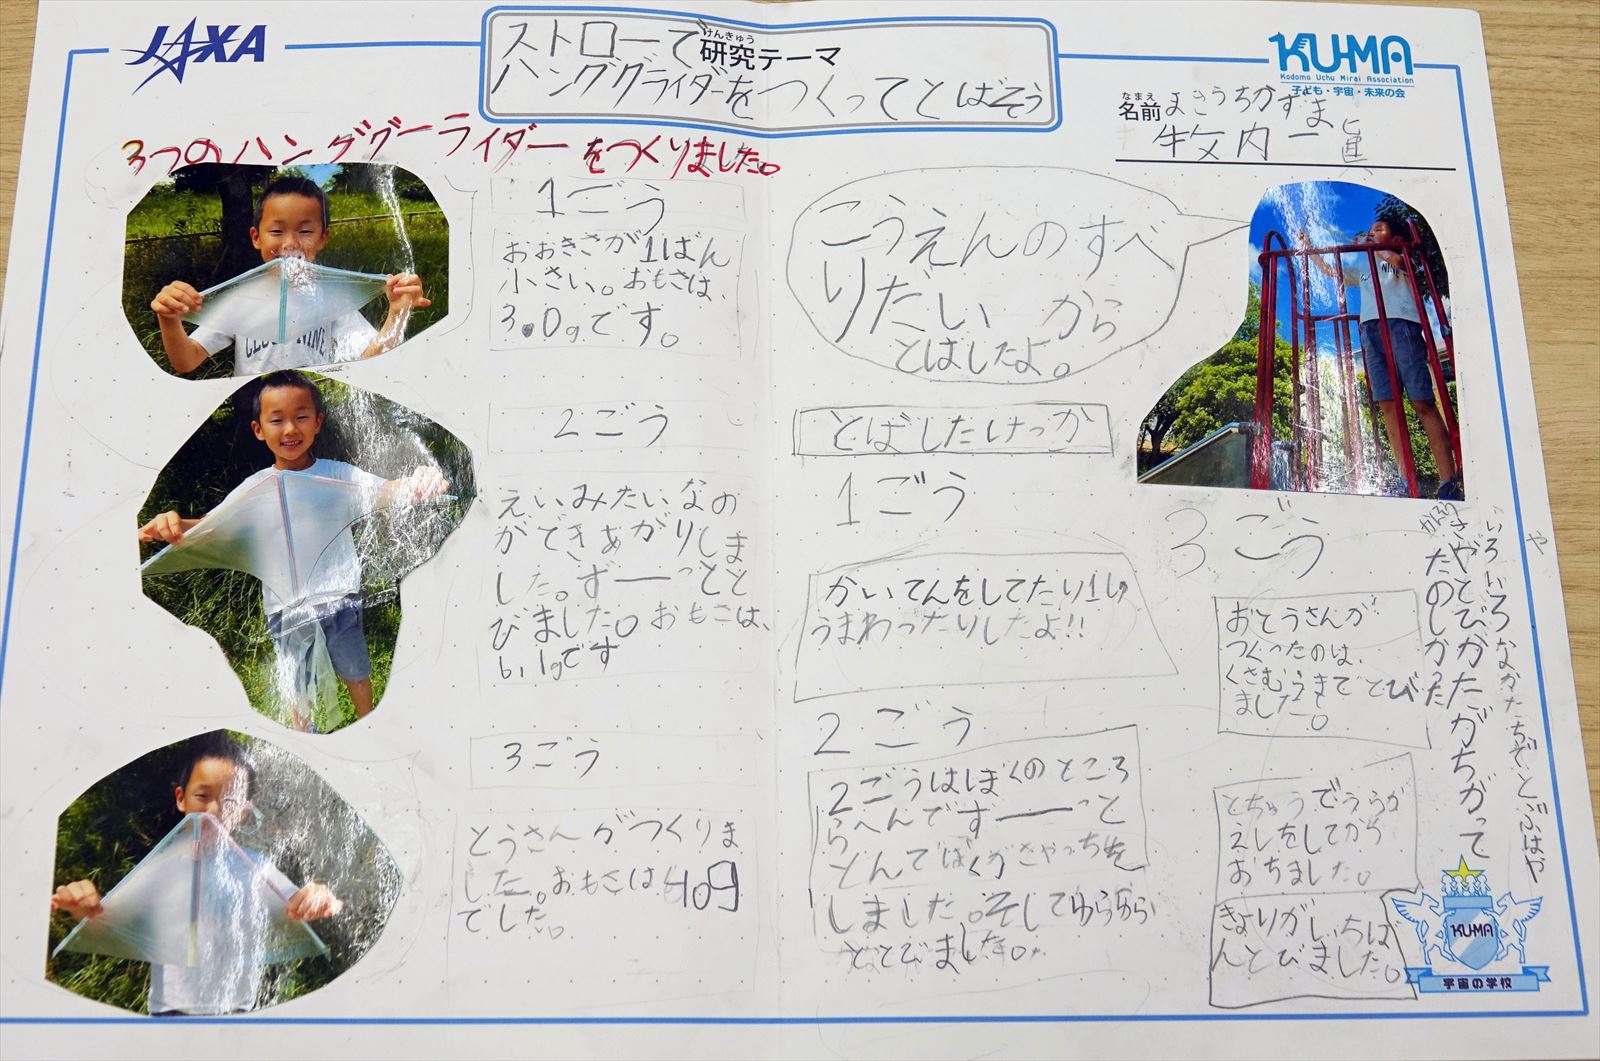 JAXA
ストローで
けんきゅう
研究テーマ
ハンググライダーをつくってとばそう
KU-MA
Kodomo Uchu Mirai Association
子ども・宇宙・未来の会
なまえ
名前
まきうちかずま
牧内一眞
3つのハンググーライダーをつくりました。
1ごう
おおきさが1ばん
小さい。おもさは、
3.0gです。
2ごう
えいみたいなの
ができあがりしま
した。ずーーっとと
びました。おもさは、
6.1gです
3ごう
とうさんがつくりま
した。おもさは
でした。
こうえんのすべ
りだい から
とばしたよ。
とばしたけっか
1ごう
かいてんをしてたり1しゅ
うまわったりしたよ!!
2ごう
2ごうはぼくのところ
らへんでずーーっと
とんでぼくがきゃっちを
しました。そしてゆらゆら
ととびました。
3ごう
おとうさんが
つくったのは、
くさむらまでとび
ました。
とちゅうでうらが
えしをしてから
おちました。
きょりがいちば
んとびました。
いろいろなかたちぞとぶはや
さやとびかたがちがって
たのしかった
KU-MA
宇宙の学校